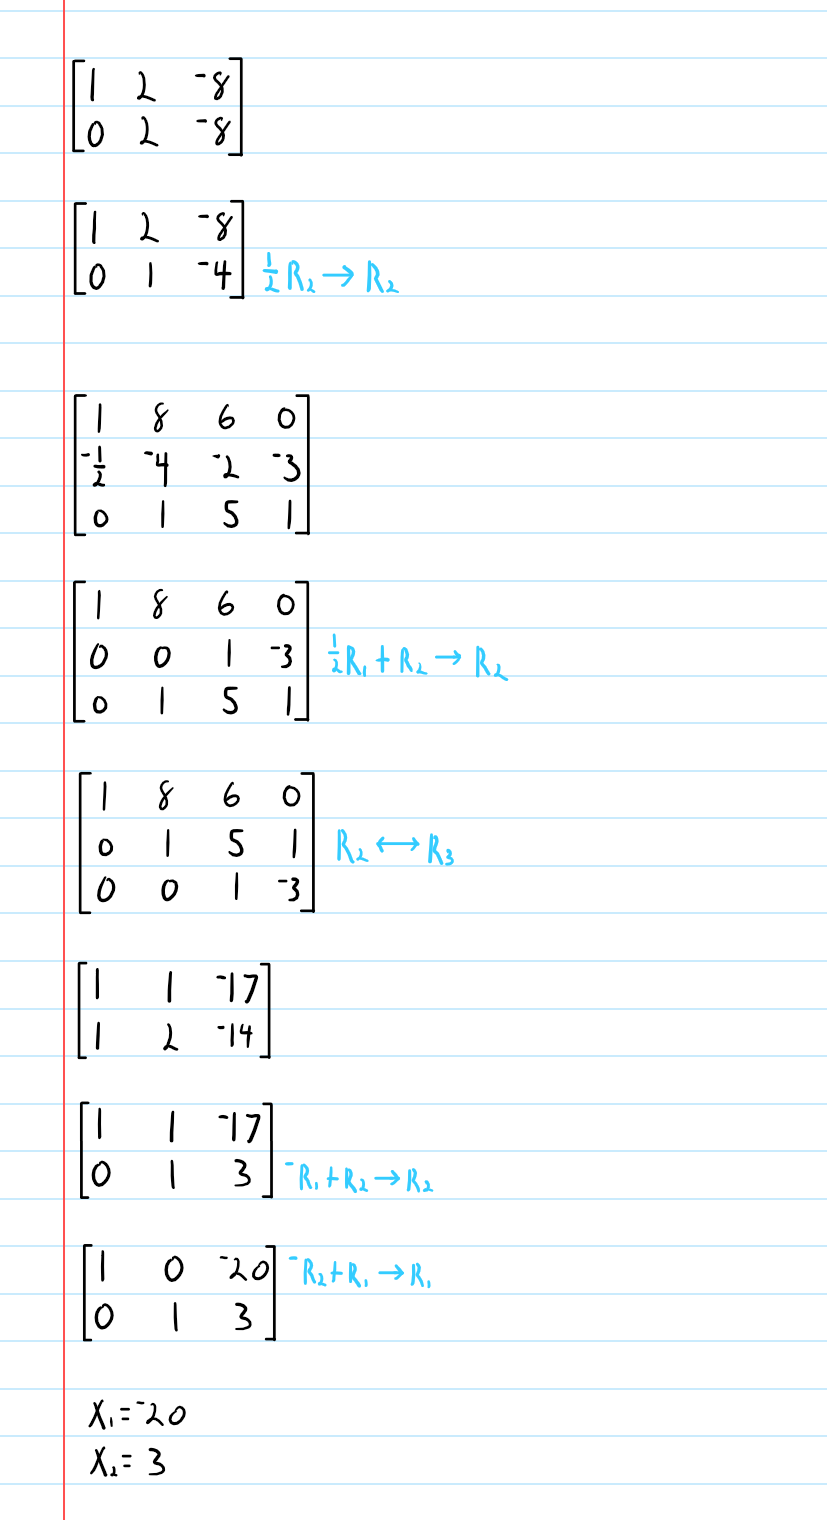 1 2 -8
0 2 -8
1 2 -8
0 1 -4 ½R₂ → R₂
1 8 6 0
-½ -4 -2 -3
0 1 5 1
1 8 6 0
0 0 1 -3 ½R₁ + R₂ → R₂
0 1 5 1
1 8 6 0
0 1 5 1 R₂ ↔ R₃
0 0 1 -3
1 1 -17
1 2 -14
1 1 -17
0 1 3 -R₁+R₂→R₂
1 0 -20 -R₂+R₁→R₁
0 1 3
X₁=-20
X₂=3